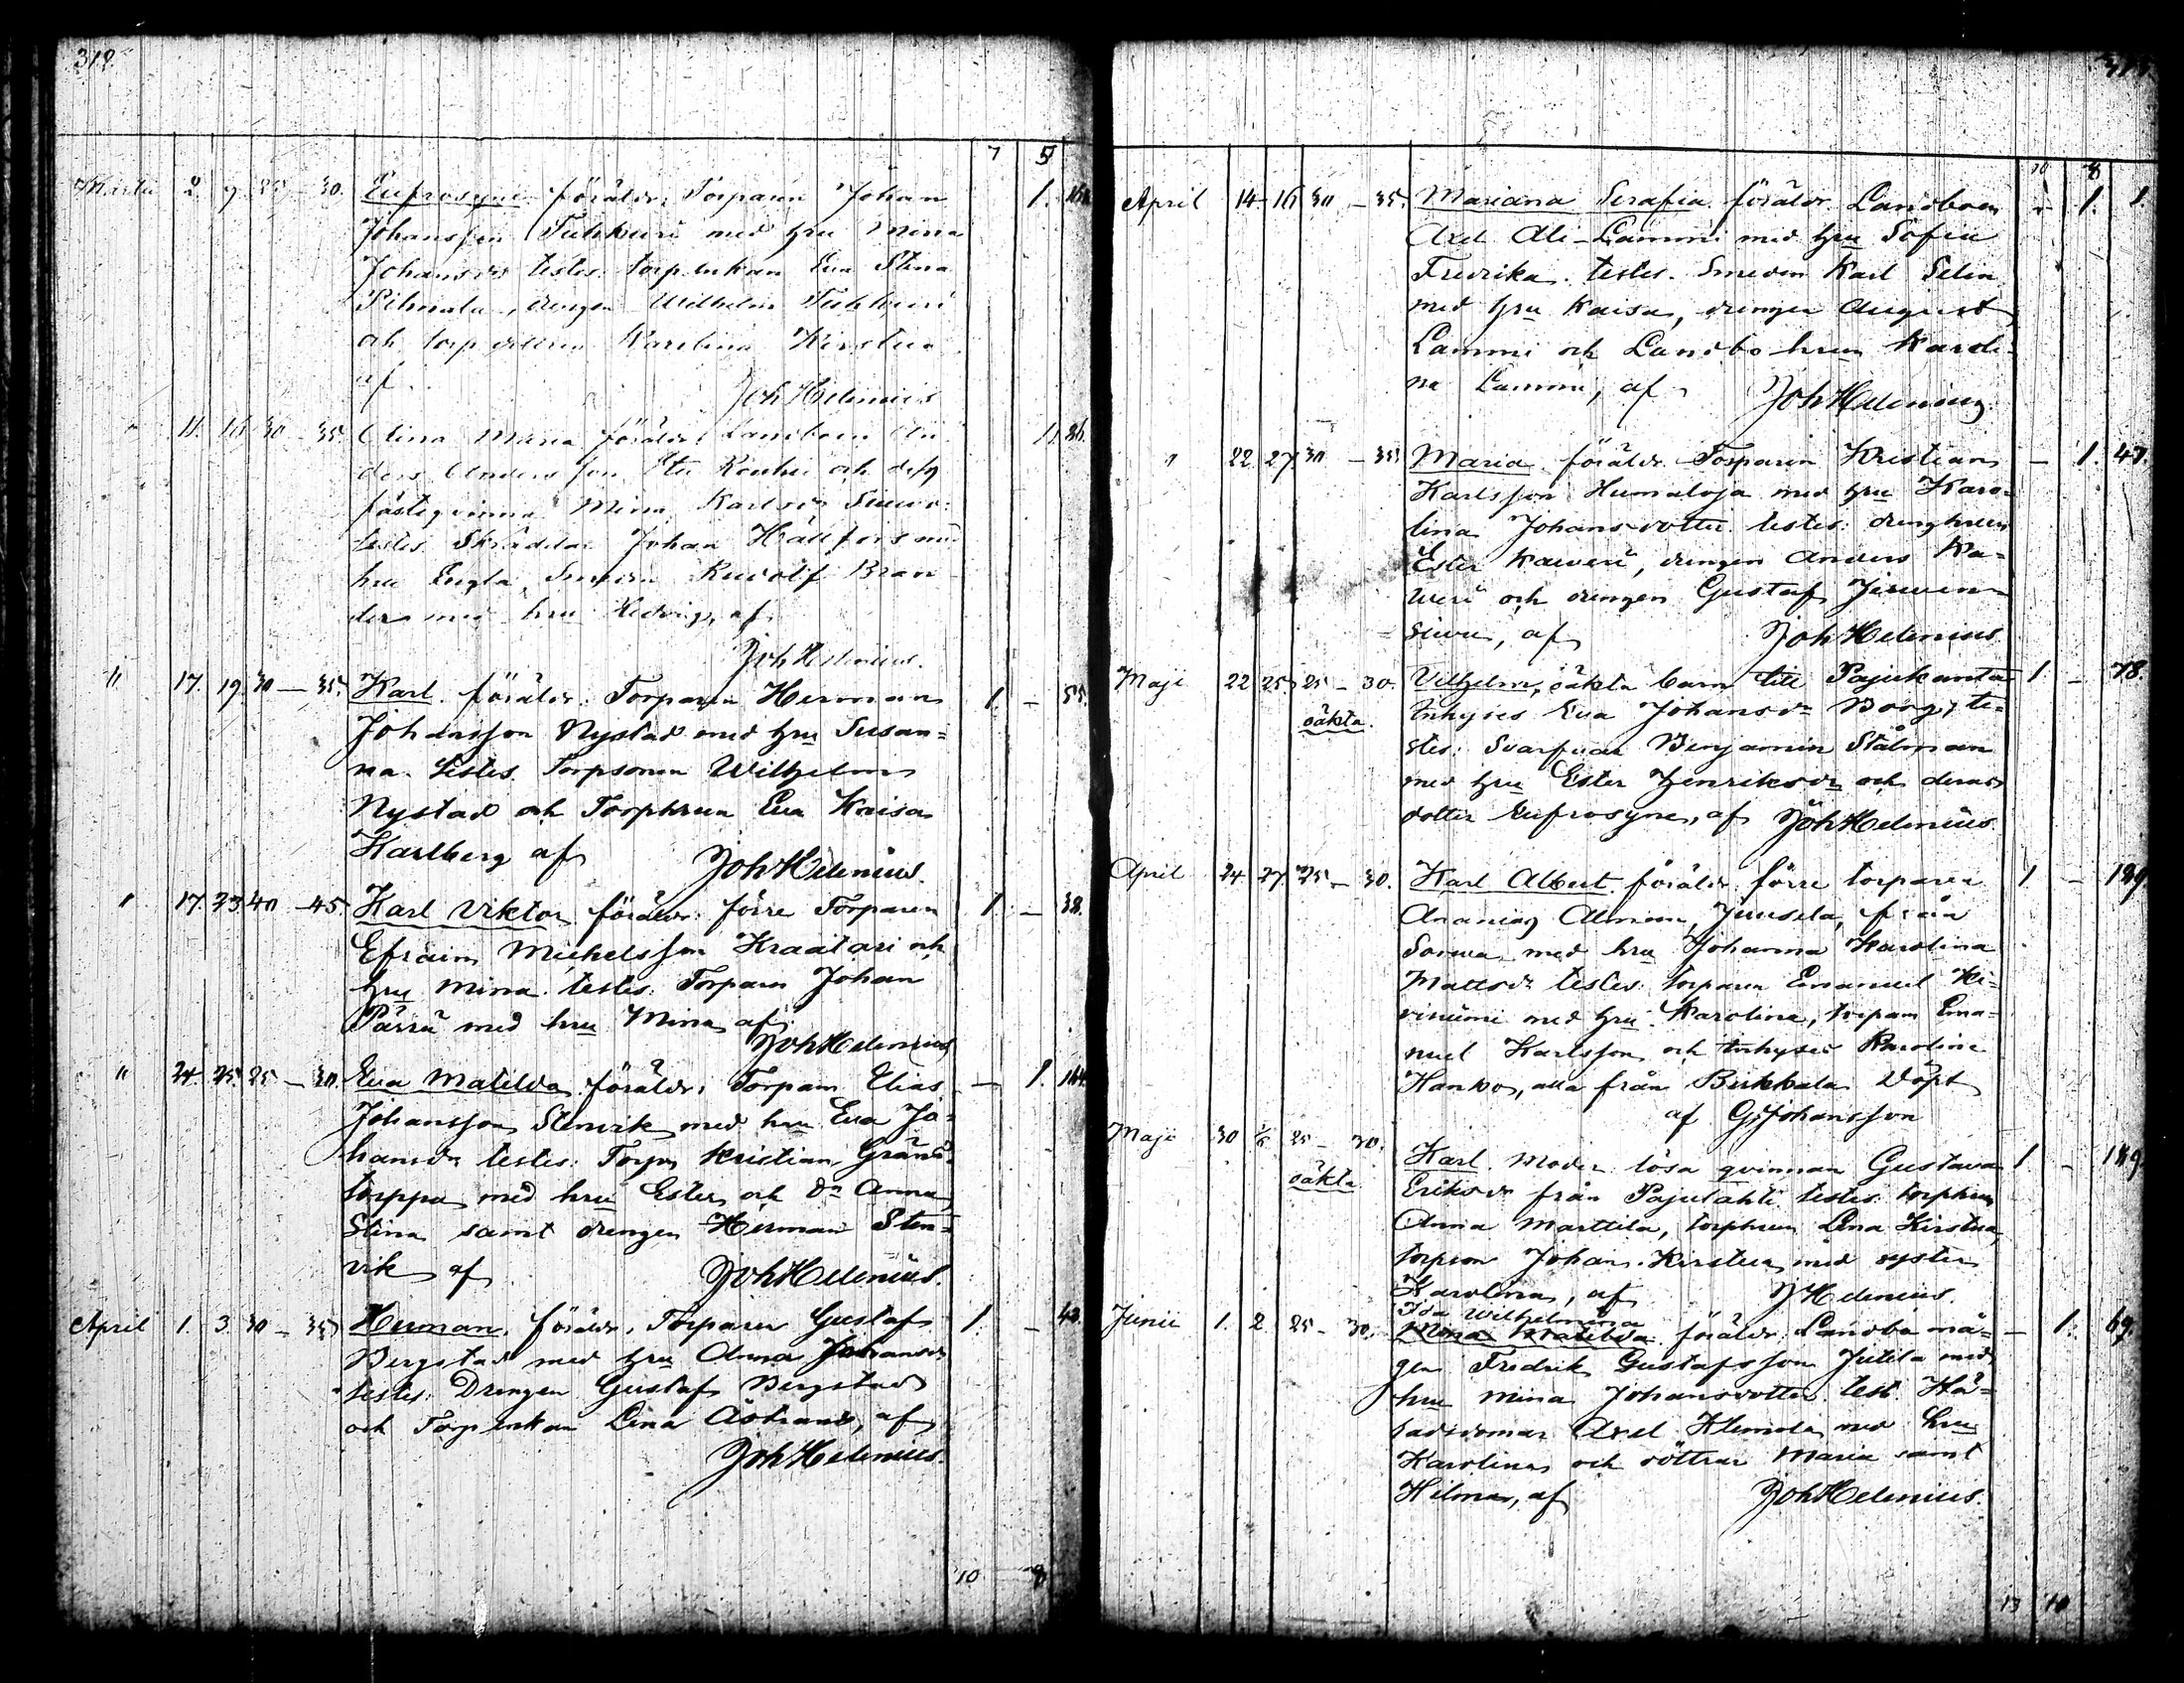 318.
7 5
Martii 2. 9. 25 - 30. Eufrosyne föräldr: Torparen Johan 1.
Johansson Tuhkuri med hru Mina
Johansdr testes: torpenkan Eva Stina
drengen Wilhelm Tuhkuri
och torpdottren Karolina Kirstua
af
Joh Helenius
" 11. 16. 30 - 35. Mina Maria föräldr: Landboen An- 1. 26.
ders Andersson Kouhi och dess
fästeqvinna Mina Karlsdr
testes: Skräddar Johan Hällfors med
hru Engla, Smeden Rudolf Bran-
ders med hru Hedvig, af
Joh Helenius.
" 17. 19. 30 - 35. Karl. föräldr: Torparen Herman 1. - 55.
Johansson Nystad med hru Susan=
na. testes. Torpsonen Wilhelm
Nystad och Torphrun Eva Kaisa
Karlberg af
Joh Helenius.
" 17. 23. 40 - 45. Karl Viktor föräldr: förre Torparen 1. - 38.
Efraim Michelsson Kraatari och
hru Mina. testes: Torparen Johan
Pärrü med hru Mina, af
Joh Helenius
" 24. 25. 25 - 30. Eva Matilda föräldr: Torparn Elias - 1. 144.
Johansson Stenvik med hru Eva Jo=
hansdr testes: Torpn Kristian Gränä-
torppa med hru Ester och dr Anna
Stina samt drengen Herman Sten=
vik af
Joh Helenius.
April 1. 3. 30 - 35. Herman. föräldr. Torparen Gustaf 1. - 43.
Bergstad med hru Anna Johansdr
testes: Drengen Gustaf Bergstad
och Torpenkan Lina Åstrand, af
Joh Helenius.
10 8
10 8
April 14. 16. 30 - 35. Mariana Serafia. föräldr. Landboen - 1. 1.
Axel Ali-Lammi med hru Sofia
Fredrika. testes. Smeden Karl Selin
med hru Kaisa, drengen August
Lammi och Landbohrun Karoli-
na Lammi, af
Joh Helenius
" 22. 27. 30 - 35. Maria. föräldr. Torparen Kristian - 1. 47.
Karlsson Humaloja med hru Karo-
lina Johansdotter. testes: drenghrun
Ester Kaweri, drengen Anders Ka=
weri och drengen Gustaf Jirwen-
siwu, af
Joh Helenius
Maji 22 25. 25 - 30. Vilhelm, oäkta barn till Pajukanta 1. - 78.
oäkta.
inhyses Eva Johansdr Borg, te=
stes: Svarfvar Benjamin Stålman
med hru Ester Henriksdr och deras
dotter Eufrosyne, af Joh Helenius.
April 24. 27. 25 - 30. Karl Albert. föräldr. förre torparen 1 - 129.
Ananias Juusela, från
med hru Johanna Karolina
Mattsdr testes: torparen Emanuel Ki-
viniemi med hru Karolina, torparn Ema-
nuel Karlsson och inhyses Karolina
Hanko, alla från Birkkala. Döpt
af G. Johansson
Maji 30 1/6 25 - 30. Karl. Moder: lösa qvinnan Gustava 1 - 189.
oäkta.
Eriksdr från Pajulahti testes: torphrun
Anna Marttila, torphrun Lina Kirstua,
torpson Johan Kirstua med syster
Karolina, af J Helenius.
Junii 1. 2. 25 - 30. Ida Wilhelmina
Mina Matilda. föräldr: Landbo må- - 1. 69.
gen Fredrik Gustafsson Jutila med
hru Mina Johansdotter. test. Hä-
radsdoman Axel Klemola med hru
Karolina och döttrar Maria samt
Hilma, af
Joh Helenius.
13 10